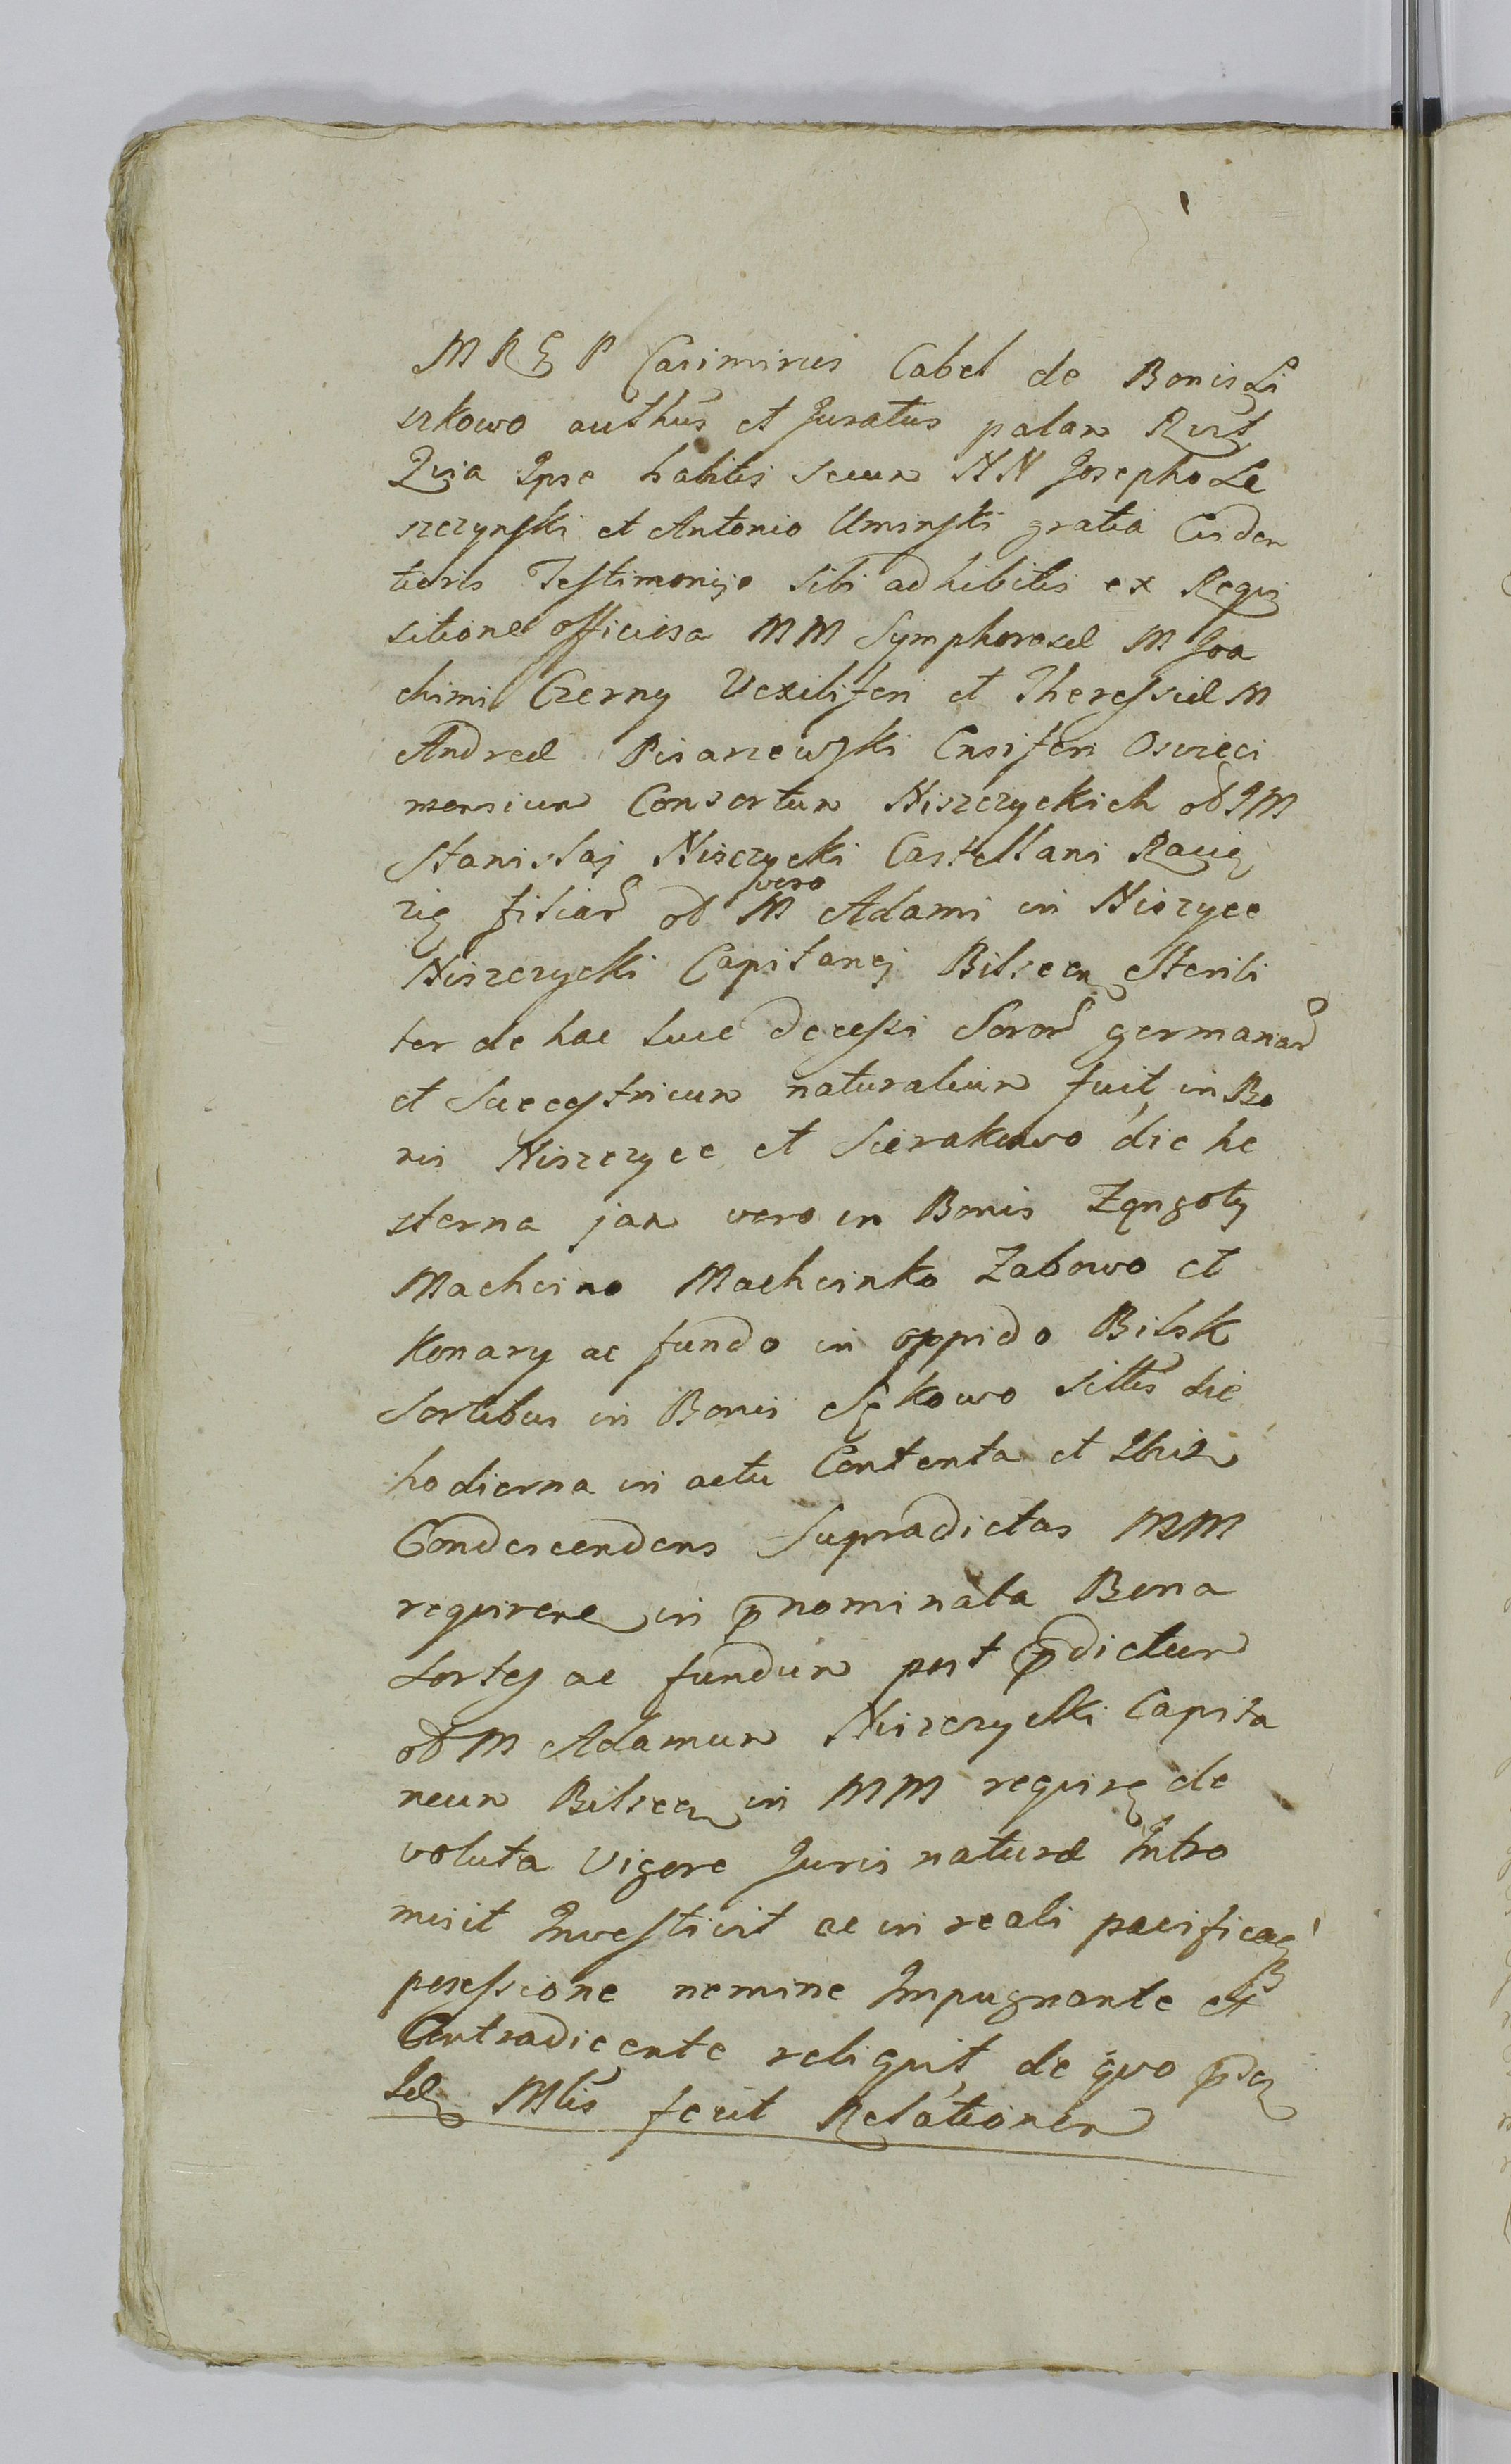 M R G P Casimirus Cabel de Bonis Li
szkowo authus et Juratus palam Rvit
Quia Ipse habitis secum NN Josepho Le
szczynski et Antonio Uminski gratia Eviden
tioris Testimonijo sibi adhibitis ex Requi
sitione officiosa MM Symphorosæ M Joa
chimi Czerny Vexiliferi et Theressiæ M
Andreæ Pisarzewski Ensiferi Oswieci
mensium Consortum Niszczyckich od IM
Stanislaj Niszczycki Castellani Raciąz
filiar od M vero Adami in Niszyce
Niszczycki Capitanej Bilscen Sterili
ter de hac luce decessi Soror germanar
et Succestricum naturalium fuit in Bo
nis Niszczyce et Sierakowo die he
sterna jam vero in Bonis Zągoty
Machcino Machcinko Zabowo et
Konary ac fundo in oppido Bilsk
Sortibus in Bonis Sękowo sittis die
hodierna in actu Contenta et Ibiq
Condescendens Supradictas MM
requirere in pnominata Bona
Sortes ac fundum post pdictum
od M Adamum Niszczycki Capita
neum Bilscen in MM require de
voluta Vigore Juris naturæ Intro
misit Investivit ac in reali pacificaq
posessione nemine Impugnante et
Contradicente reliquit de quo psen
Mlis fecit Relationem